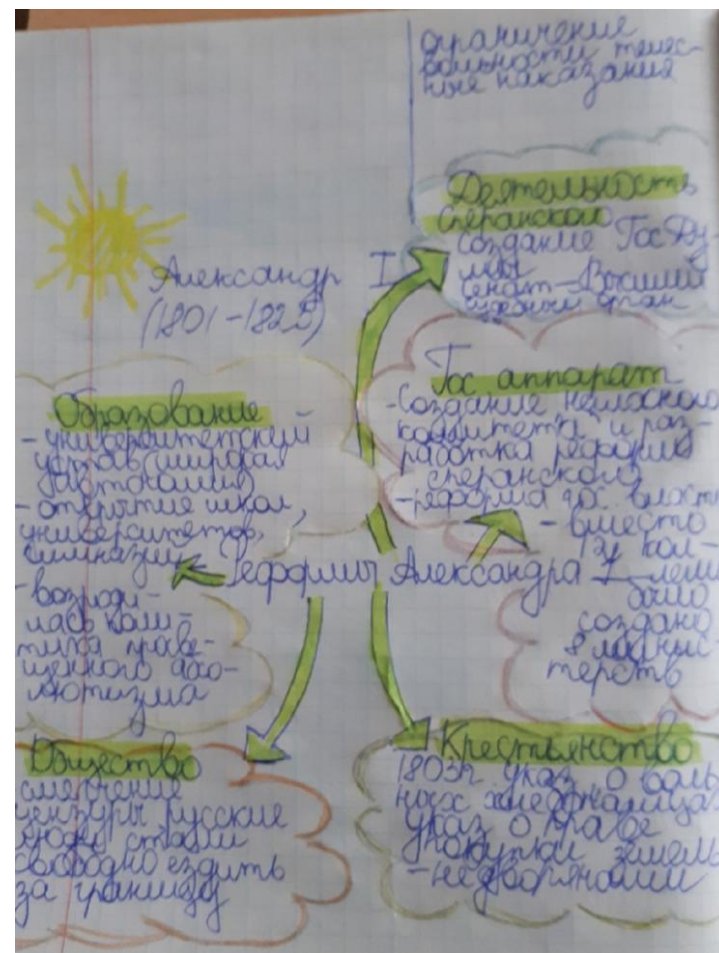 ограничение
вольности телес-
ные наказания
Деятельность
Сперанского
создание Гос Ду-
мы
Сенат - Высший
судебный орган
Александр I
(1801-1825)
Гос аппарат
-Создание негласного
комитета и раз-
работка реформ
Сперанского
-реформа гос власти
- вместо
кол-
легий
было
создано
8 минис
терств
Образование
- университетский
устав (широкая
автономия)
- открытие школ,
университетов,
гимназий
- возроди-
лась поли-
тика просве-
щенного абсо-
лютизма
Реформы Александра I
Общество
смягчение
цензуры русские
люди стали
свободно ездить
за границу
Крестьянство
1803г указ о воль
ных хлебопашцах
указ о праве
покупки земель
-недворянами